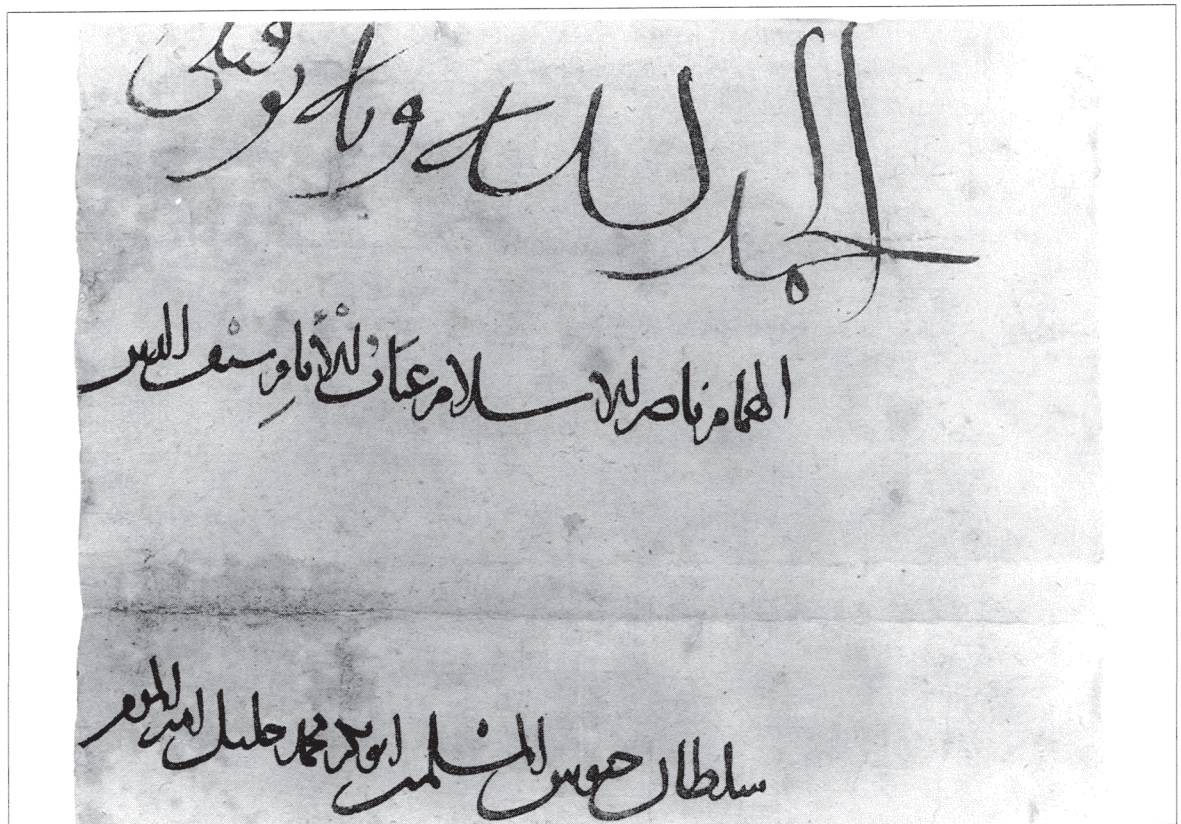 الحمد لله وبه توفيقي
الهمام ناصر الاسلام غياث الأنام سيف الدين
سلطان جيوش المسلمين ابو بكر محمد خليل امير المؤمنين